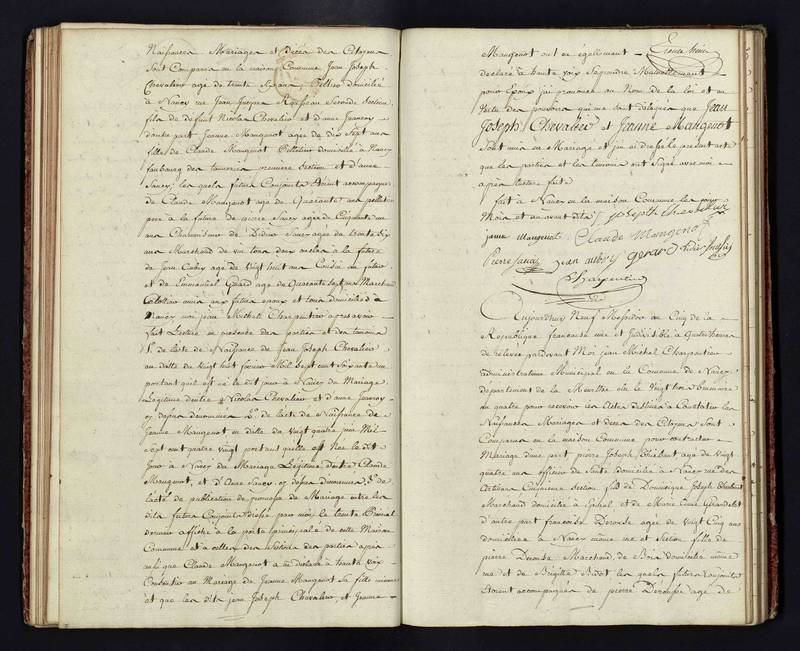 Naissances Mariages et décès des Citoyens
sont Comparus en la maison Commune Jean Joseph
Chevalier age de trente six ans, domicilié
à Nancy rue Jean Jacques Rousseau seconde Section
fils de defunt Nicolas Chevalier et d'anne Jeanroy
d'autre part Jeanne Maugenot agée de dix sept ans
fille de Claude Maugenot Pelletier domicilié à Nancy
faubourg des tanneries premiere Section et d'anne
Saucy; les quels futurs Conjoints étoient accompagnés
de Claude Maugenot age de Quarante ans pelletier
pere à la future de pierre Saucy agée de Cinquante un
ans de Didier Saucy agée de trente six
ans Marchand de vin tous deux oncles a la future
de Jean aubry age de Vingt huit ans Cousin au futur
et de Emmanuel Gerard age de Quarante Sept ans Marchand
amis aux futurs epoux et tous domiciliés à
Nancy moi jean Michel Charpentier apres avoir
fait Lecture en presence des parties et des temoins
1°. de l'acte de Naissance de Jean Joseph Chevalier
en datte du Vingt huit fevrier Mil Sept cent soixante un
portant quil est né le dit jour à Nancy du Mariage
Légitime dentre Nicolas Chevalier et d'anne Jeanroy
cy dessus denommés 2°. de l'acte de Naissance de
Jeanne Maugenot en datte du Vingt quatre juin Mil
sept cent quatre vingt portant quelle est Née le dit
jour à Nancy du Mariage Légitime d'entre Claude
Maugenot, et d'Anne Saucy cy dessus denommés 3°. de
l'acte de publication de promesse de Mariage entre les
dits futurs Conjoints dressé par moi le trente Prairial
dernier affiché a la porte principale de cette Maison
Commune et a celles des Sections des parties apres
aussi que Claude Maugenot a eu déclaré à haute voix
Consentir au Mariage de Jeanne Maugenot sa fille mineure
et que les dits jean Joseph Chevalier, et Jeanne
Maugenot ont eu également
declaré à haute voix Seprendre Mutuellement
pour Epoux j'ai prononcé au Nom de la loi et en
Vertu des pouvoirs qui me sont delegués que Jean
Joseph Chevalier et Jeanne Maugenot
sont unis en Mariage et j'ai dressé le present acte
que les parties et les temoins ont signé avec moi
après lecture faite
fait à Nancy en la maison Commune les jour
Mois et an avant dits / joseph chevalier
janne maugenot Claude Maugenot
Pierre saucy jean aubry gerard didier
Charpentier
Aujourdhuy Neuf Messidor an Cinq de la
Republique francaise une et Indivisible à Quatre heures
de relevée pardevant Moi jean Michel Charpentier
administrateur Municipal en la Commune de Nancy
département de la Meurthe élu le Vingt trois brumaire
an quatre pour recevoir les Actes destinés a Constater les
Naissances Mariages et deces des Citoyens Sont
Comparus en la maison Commune pour contracter
Mariage d'une part pierre Joseph age de vingt
quatre ans officier de Santé domicilié à Nancy rue des
Artisans Cinquieme Section fils de Dominique Joseph
Marchand domicilié à Epinal et de Marie Anne
d'autre part francoise Derousse agee de Vingt Cinq ans
domiciliée a Nancy même rue et Section fille de
pierre Derousse Marchand de Bois domicilié même
rue et de Brigitte les quels futurs Conjoints
étoient accompagnés de pierre Derousse agé de